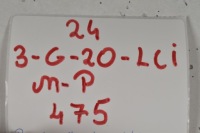 24
3-G-20-LCi
M-P
475